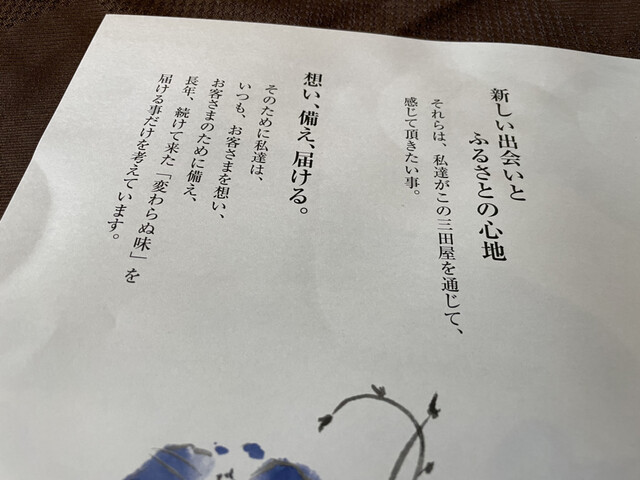 新しい出会いと
ふるさとの心地
それらは、私達がこの三田屋を通じて、
感じて頂きたい事。
想い、備え、届ける。
そのために私達は、
いつも、お客さまを想い、
お客さまのために備え、
長年、続けて来た「変わらぬ味」を
届ける事だけを考えています。